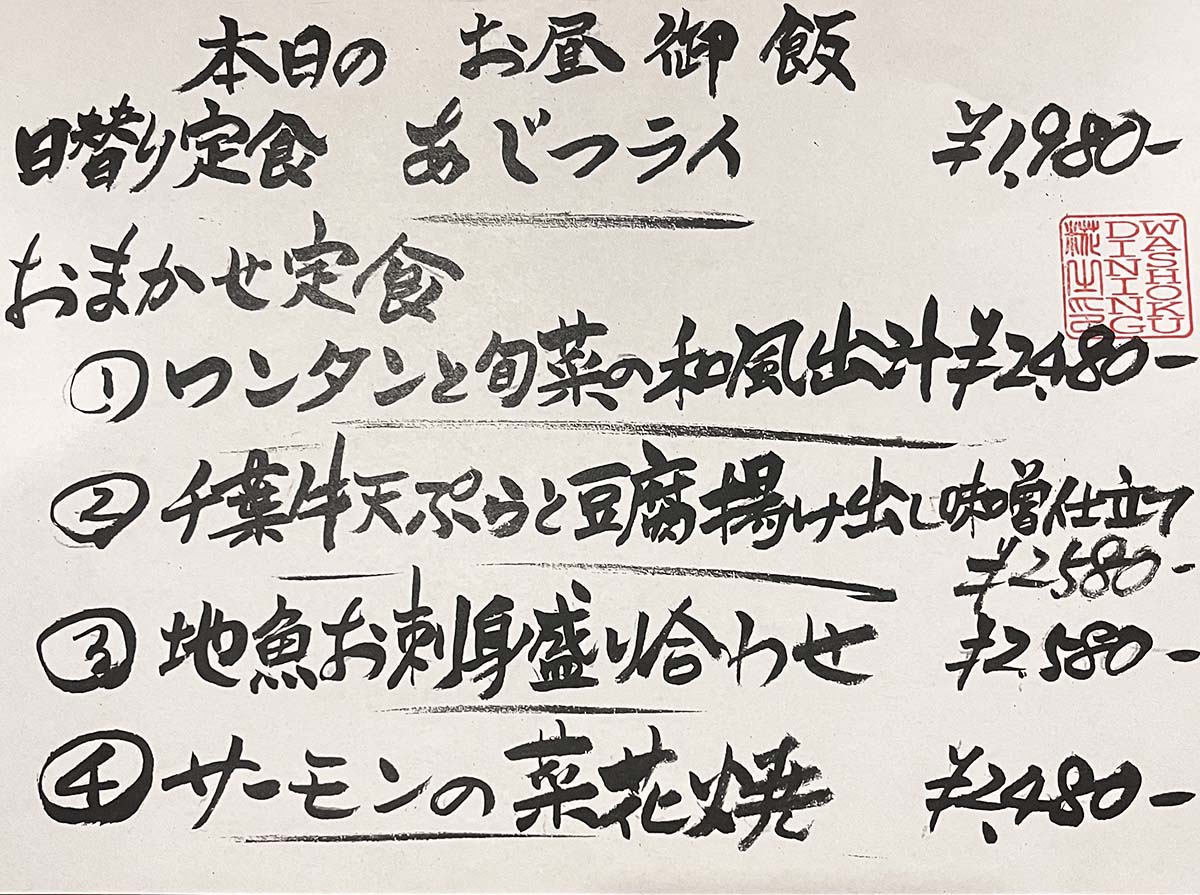 本日の お昼御飯
日替り定食 あじフライ ¥1,980-
おまかせ定食
WASHOKU
DINING
① ワンタンと旬菜の和風出汁 ¥2,480-
② 千葉牛天ぷらと豆腐揚げ出し味噌仕立て
¥2580-
③ 地魚お刺身盛り合わせ ¥2580-
④ サーモンの菜花焼 ¥2,480-